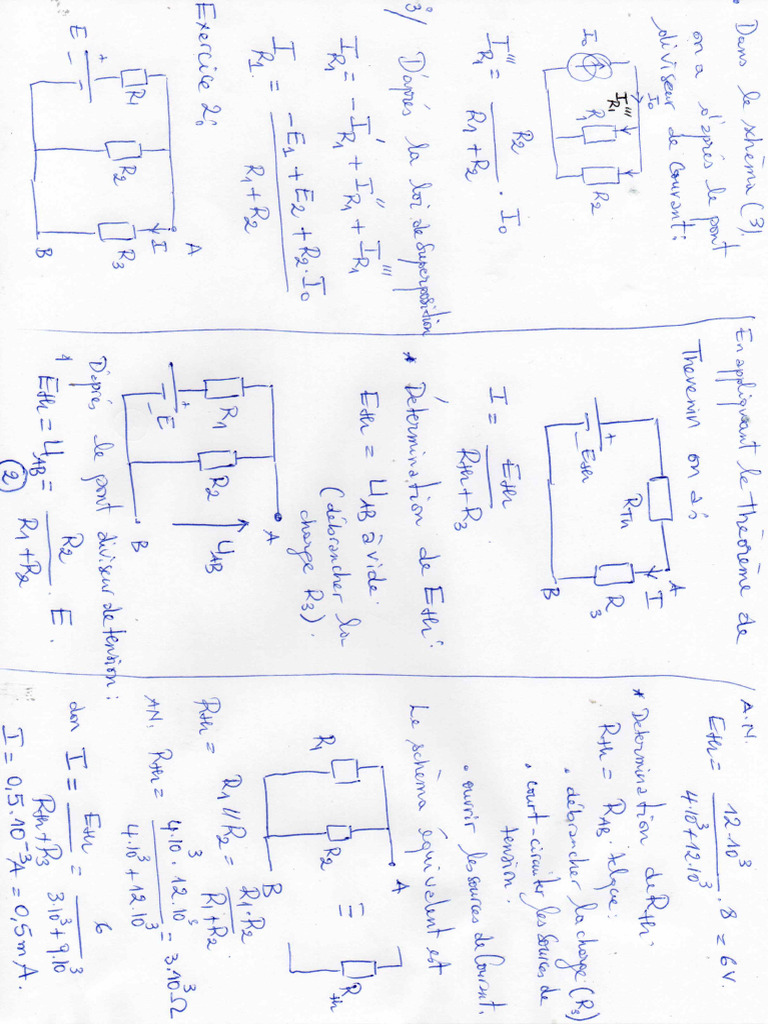 Dans le schèma (3).
on a d'après le pont
diviseur de courant:
I₀
I₀
I'''R1
R1
R2
I'''R1 = R2 / (R1+R2) . I₀
3°/ D'après la loi de superposition
IR1 = -I'R1 + I''R1 + I'''R1
IR1 = (-E1 + E2 + R2.I₀) / (R1+R2)
Exercice 2:
A
I
R1
R2
R3
E
+
-
B
En appliquant le théorème de
Thevenin on a:
A
I
RTH
R3
+
- Eth
B
I = Eth / (Rth+R3)
* Détermination de Eth:
Eth = UAB à vide.
(débrancher la
charge R3).
A
R1
R2
UAB
+
- E
B
D'après le pont diviseur de tension:
* Eth = UAB = R2 / (R1+R2) . E.
(2)
A.N.
Eth = 12.10³ / (4.10³+12.10³) . 8 = 6V.
* Determination de Rth.
Rth = RAB. telque:
. débrancher la charge (R3)
. court-circuiter les sources de
tension.
. ouvrir les sources de Courant.
Le schèma équivalent est
A
R1
R2
=
Rth
B
Rth = R1//R2 = R1.R2 / (R1+R2).
AN. Rth = 4.10³.12.10³ / (4.10³+12.10³) = 3.10³Ω
don I = Eth / (Rth+R3) = 6 / (3.10³+9.10³)
I = 0,5.10⁻³A = 0,5mA.